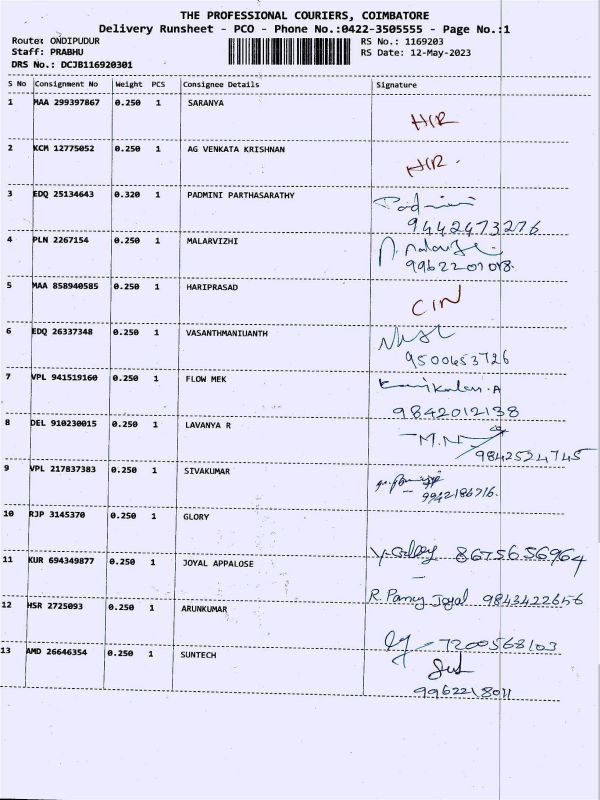 THE PROFESSIONAL COURIERS, COIMBATORE
Delivery Runsheet - PCO - Phone No.:0422-3505555 - Page No.:1
Route: ONDIPUDUR RS No.: 1169203
Staff: PRABHU RS Date: 12-May-2023
DRS No.: DCJB116920301
S No Consignment No Weight PCS Consignee Details Signature
1 MAA 299397867 0.250 1 SARANYA
H/R
2 KCM 12775052 0.250 1 AG VENKATA KRISHNAN
H/R.
3 EDQ 25134643 0.320 1 PADMINI PARTHASARATHY
Padmini
9442473276
4 PLN 2267154 0.250 1 MALARVIZHI
9962201018.
5 MAA 858940585 0.250 1 HARIPRASAD
C/N
6 EDQ 26337348 0.250 1 VASANTHMANIUANTH
9500653726
7 VPL 941519160 0.250 1 FLOW MEK
9842012138
8 DEL 910230015 0.250 1 LAVANYA R
9842524745
9 VPL 217837383 0.250 1 SIVAKUMAR
9942186716.
10 RJP 3145370 0.250 1 GLORY
8675656964
11 KUR 694349877 0.250 1 JOYAL APPALOSE
R. Pamcy Joyal 9843422656
12 HSR 2725093 0.250 1 ARUNKUMAR
7200568103
13 AMD 26646354 0.250 1 SUNTECH
9962218011